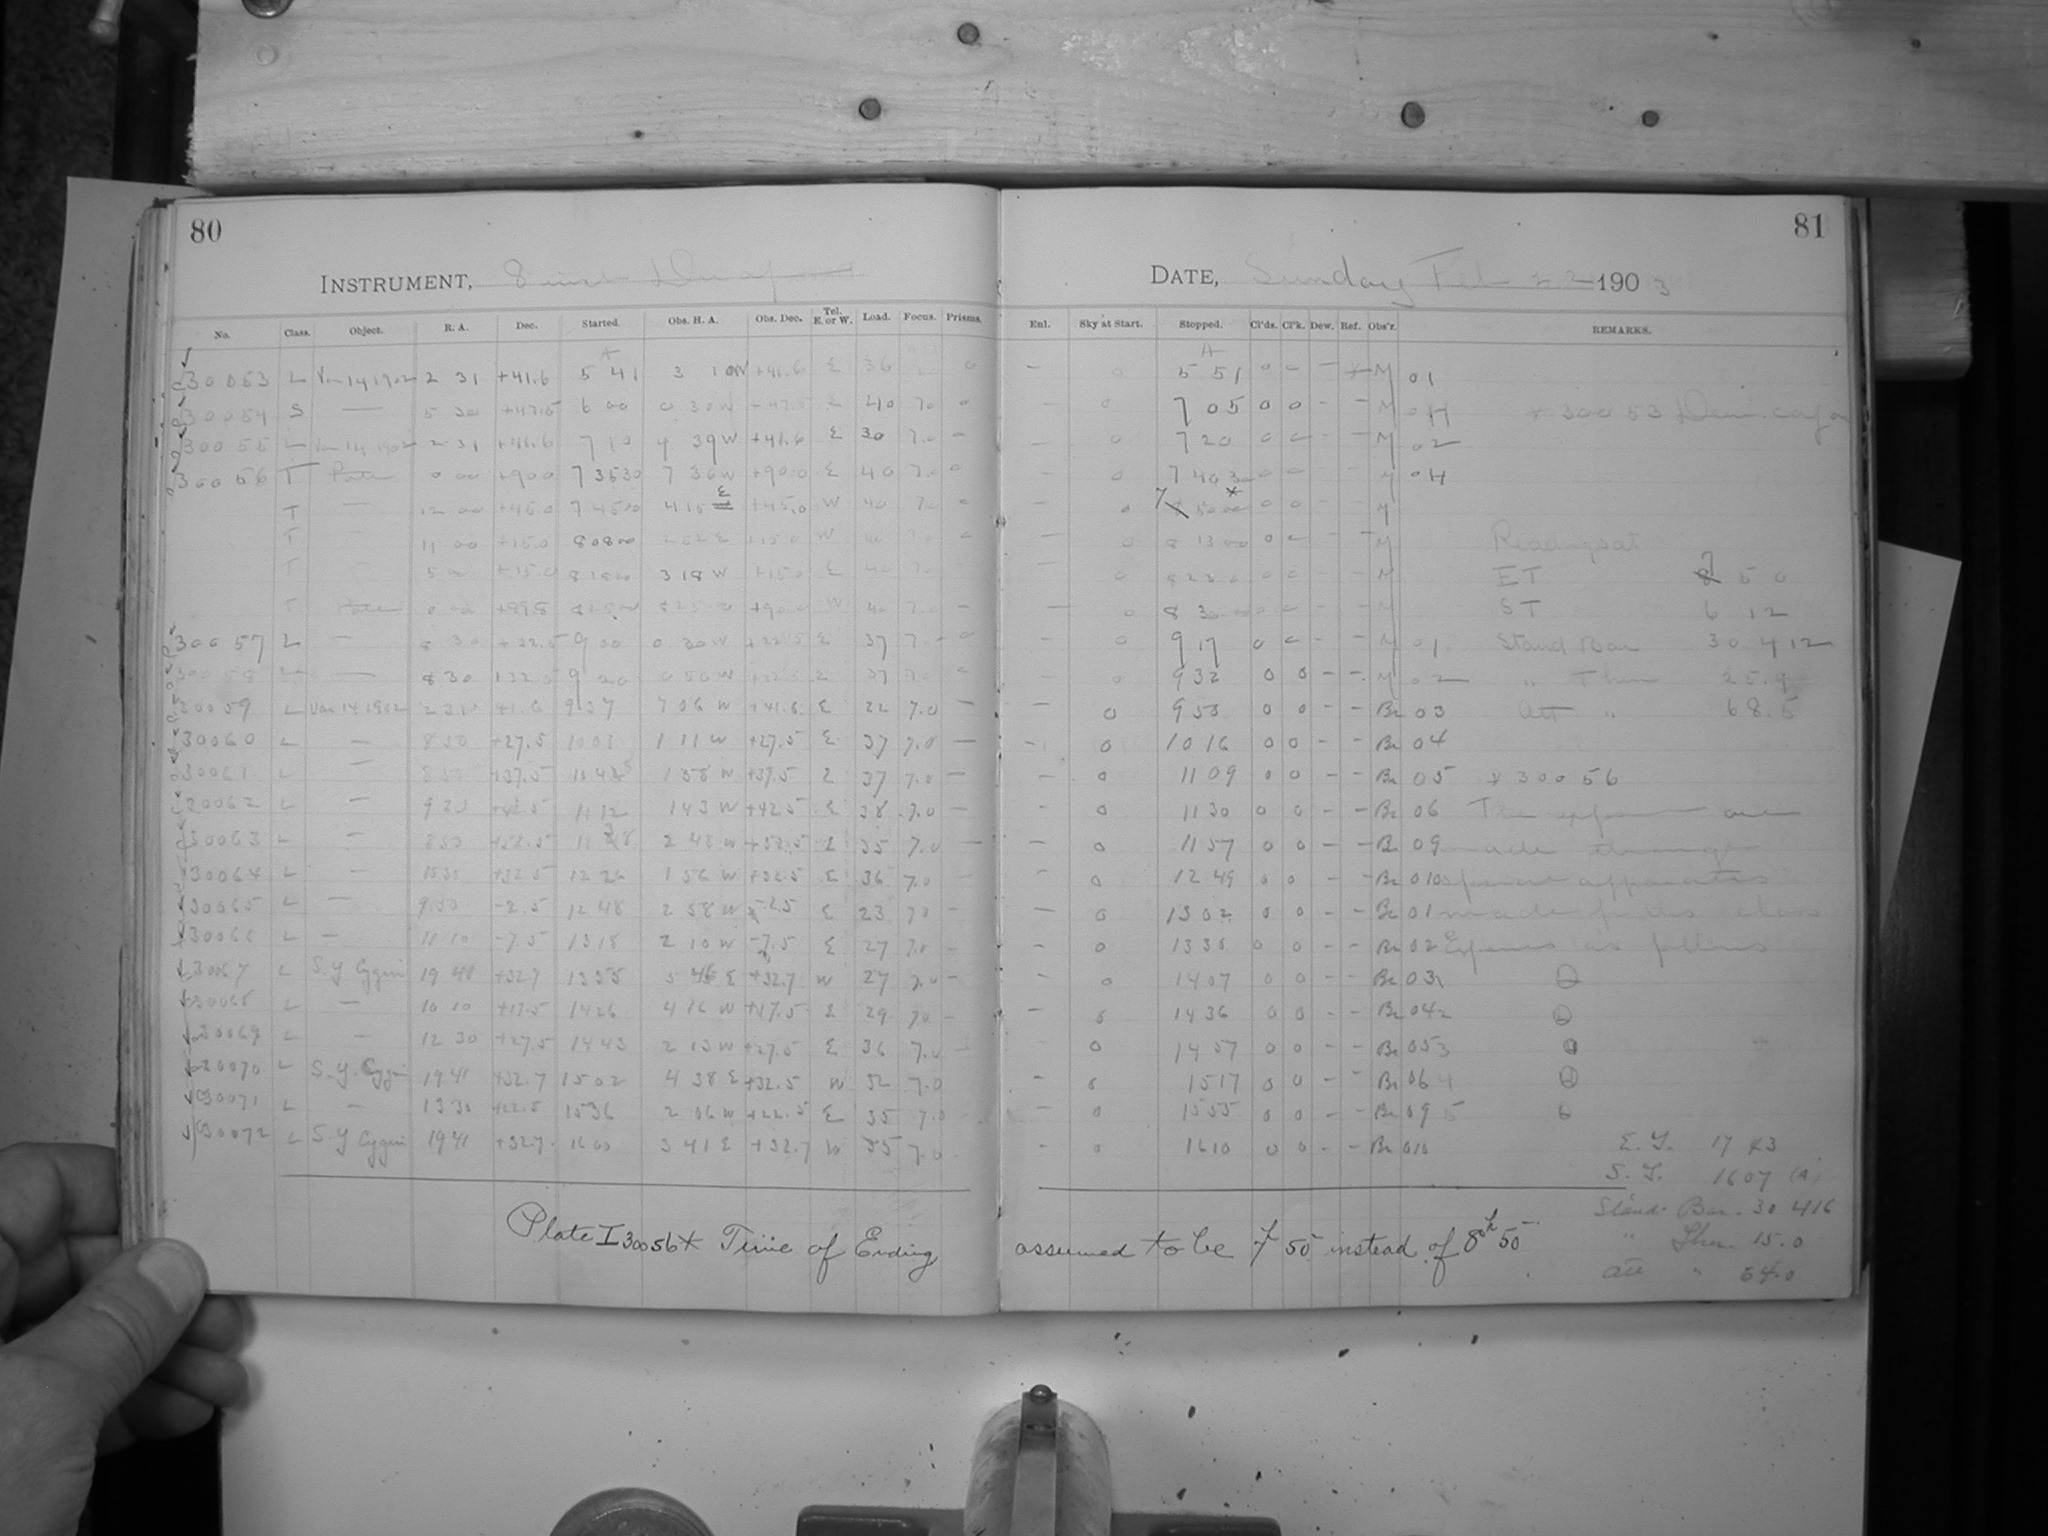 80
INSTRUMENT, 8 inch Draper
No. Class. Object. R. A. Dec. Started. Obs. H. A. Obs. Dec. Tel. E. or W. Load. Focus. Prisms.
30053 L Var 14 1902 2 31 +41.6 5 41 3 10 W +41.6 E 36 0
30054 S — 5 30 +47.5 6 00 0 30 W +47.5 E 40 7.0 0
30055 L Var 14 1902 2 31 +41.6 7 10 4 39 W +41.6 E 30 7.0 —
30056 T Pole 0 00 +90.0 7 35 30 7 36 W +90.0 E 40 7.0 0
T — 12 00 +45.0 7 45 00 4 15 E +45.0 W 40 7.0 0
T — 11 00 +15.0 8 08 00 2 52 E +15.0 W 40 7.0 0
T — 5 00 +15.0 8 18 00 3 18 W +15.0 E 40 7.0
T Pole 0 00 +89.8 8 25 00 +90.0 W 40 7.0 —
30057 L — 8 30 +22.5 9 00 0 30 W +22.5 E 37 7.0 0
30058 L — 8 30 +32.5 9 20 0 50 W +32.5 E 37 7.0
30059 L Var 14 1902 2 31 41.6 9 37 7 06 W +41.6 E 22 7.0 —
30060 L — 8 50 +27.5 10 01 1 11 W +27.5 E 37 7.0 —
30061 L — +37.5 1 58 W +37.5 E 37 7.0 —
30062 L — 9 20 +42.5 11 12 1 43 W +42.5 E 38 7.0 —
30063 L — 8 50 +52.5 2 48 W +52.5 E 35 7.0 —
30064 L — 10 30 +32.5 12 26 1 56 W +32.5 E 36 7.0 —
30065 L — 9 50 -2.5 12 48 2 58 W -2.5 E 23 7.0 —
30066 L — 11 10 -7.5 13 18 2 10 W -7.5 E 27 7.0 —
30067 L S.Y Cygni 19 41 +32.7 13 55 5 46 E +32.7 W 27 7.0 —
30068 L — 10 10 +17.5 14 26 4 16 W +17.5 E 29 7.0 —
30069 L — 12 30 +27.5 14 43 2 13 W +27.5 E 36 7.0 —
30070 L S.Y. Cygni 19 41 +32.7 15 02 4 38 E +32.5 W 32 7.0
30071 L — 13 30 +22.5 15 36 2 06 W +22.5 E 35 7.0
30072 L S.Y Cygni 19 41 +32.7 16 00 3 41 E +32.7 W 35 7.0
Plate I 30056* Time of Ending
81
DATE, Sunday Feb 22 1903
Enl. Sky at Start. Stopped. Cl'ds. Cl'k. Dew. Ref. Obs'r. REMARKS.
— 0 5 51 0 0 — * M 01
0 7 05 0 0 - - M 0H * 30053 Dew. cap on
— 0 7 20 0 0 - - M 02
— 0 7 40 30 0 0 M 0H
— 0 7 50 00 * 0 0 M
— 0 8 13 00 0 0 - - M Readings at
— 0 8 23 0 0 0 - - M ET 7 50
— 0 8 30 0 0 - - M ST 6 12
— 0 9 17 0 0 - - M 01. Stand Bar 30 412
— 0 9 32 0 0 - - M 02 " Ther
— 0 9 53 0 0 - - Br 03 Att " 68.5
— 0 10 16 0 0 - - Br 04
— 0 11 09 0 0 - - Br 05 * 30056
— 0 11 30 0 0 - - Br 06 The exposures are
— 0 11 57 0 0 - - Br 09 made through
— 0 12 49 0 0 - - Br 010 special apparatus
— 0 13 02 0 0 - - Br 01 made for this class
— 0 13 38 0 0 - - Br 02 Exposures as follows
— 0 14 07 0 0 - - Br 03 1
— 0 14 36 0 0 - - Br 04 2
0 14 57 0 0 - - Br 05 3
— 0 15 17 0 0 - - Br 06 4
— 0 15 55 0 0 - - Br 09 5
- 0 16 10 0 0 - - Br 010
E. T. 17 43
S. T. 16 07 (A)
Stand. Bar. 30 416
" Ther. 15.0
Att " 64.0
assumed to be 7h 50 instead of 8h 50